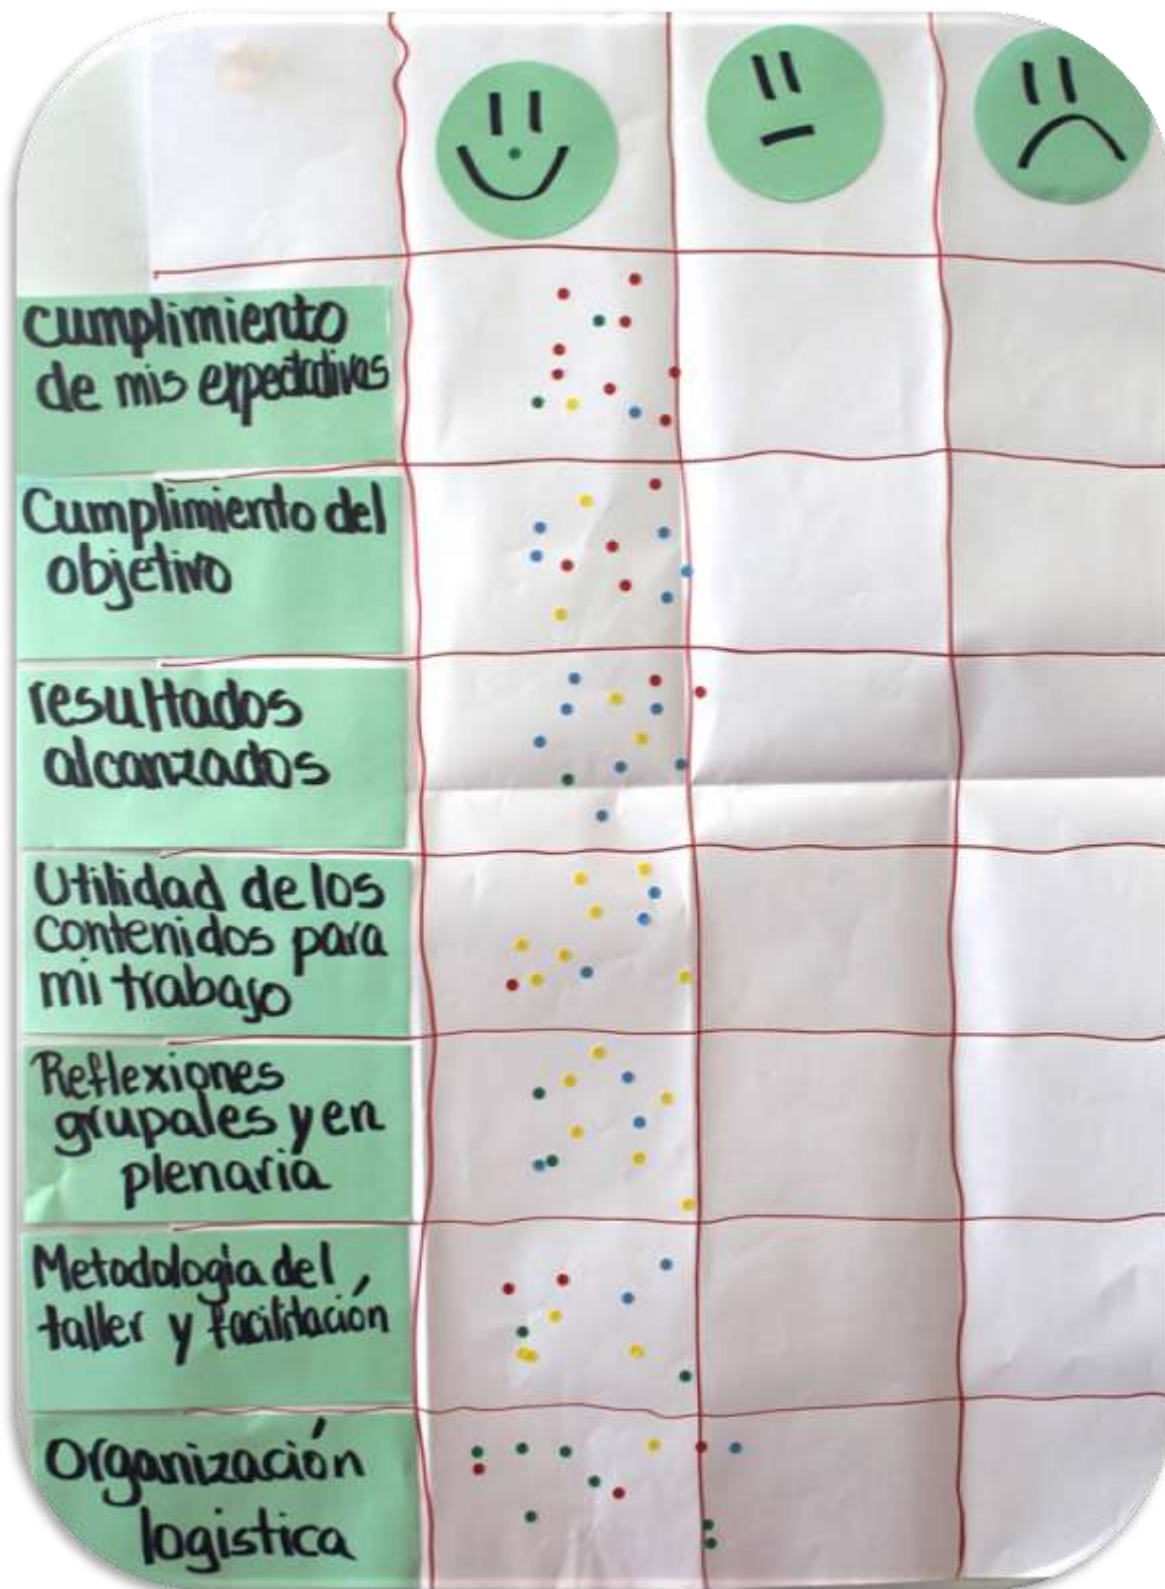 cumplimiento
de mis expectativas
Cumplimiento del
objetivo
resultados
alcanzados
Utilidad de los
contenidos para
mi trabajo
Reflexiones
grupales y en
plenaria
Metodologia del
taller y facilitación
Organización
logistica